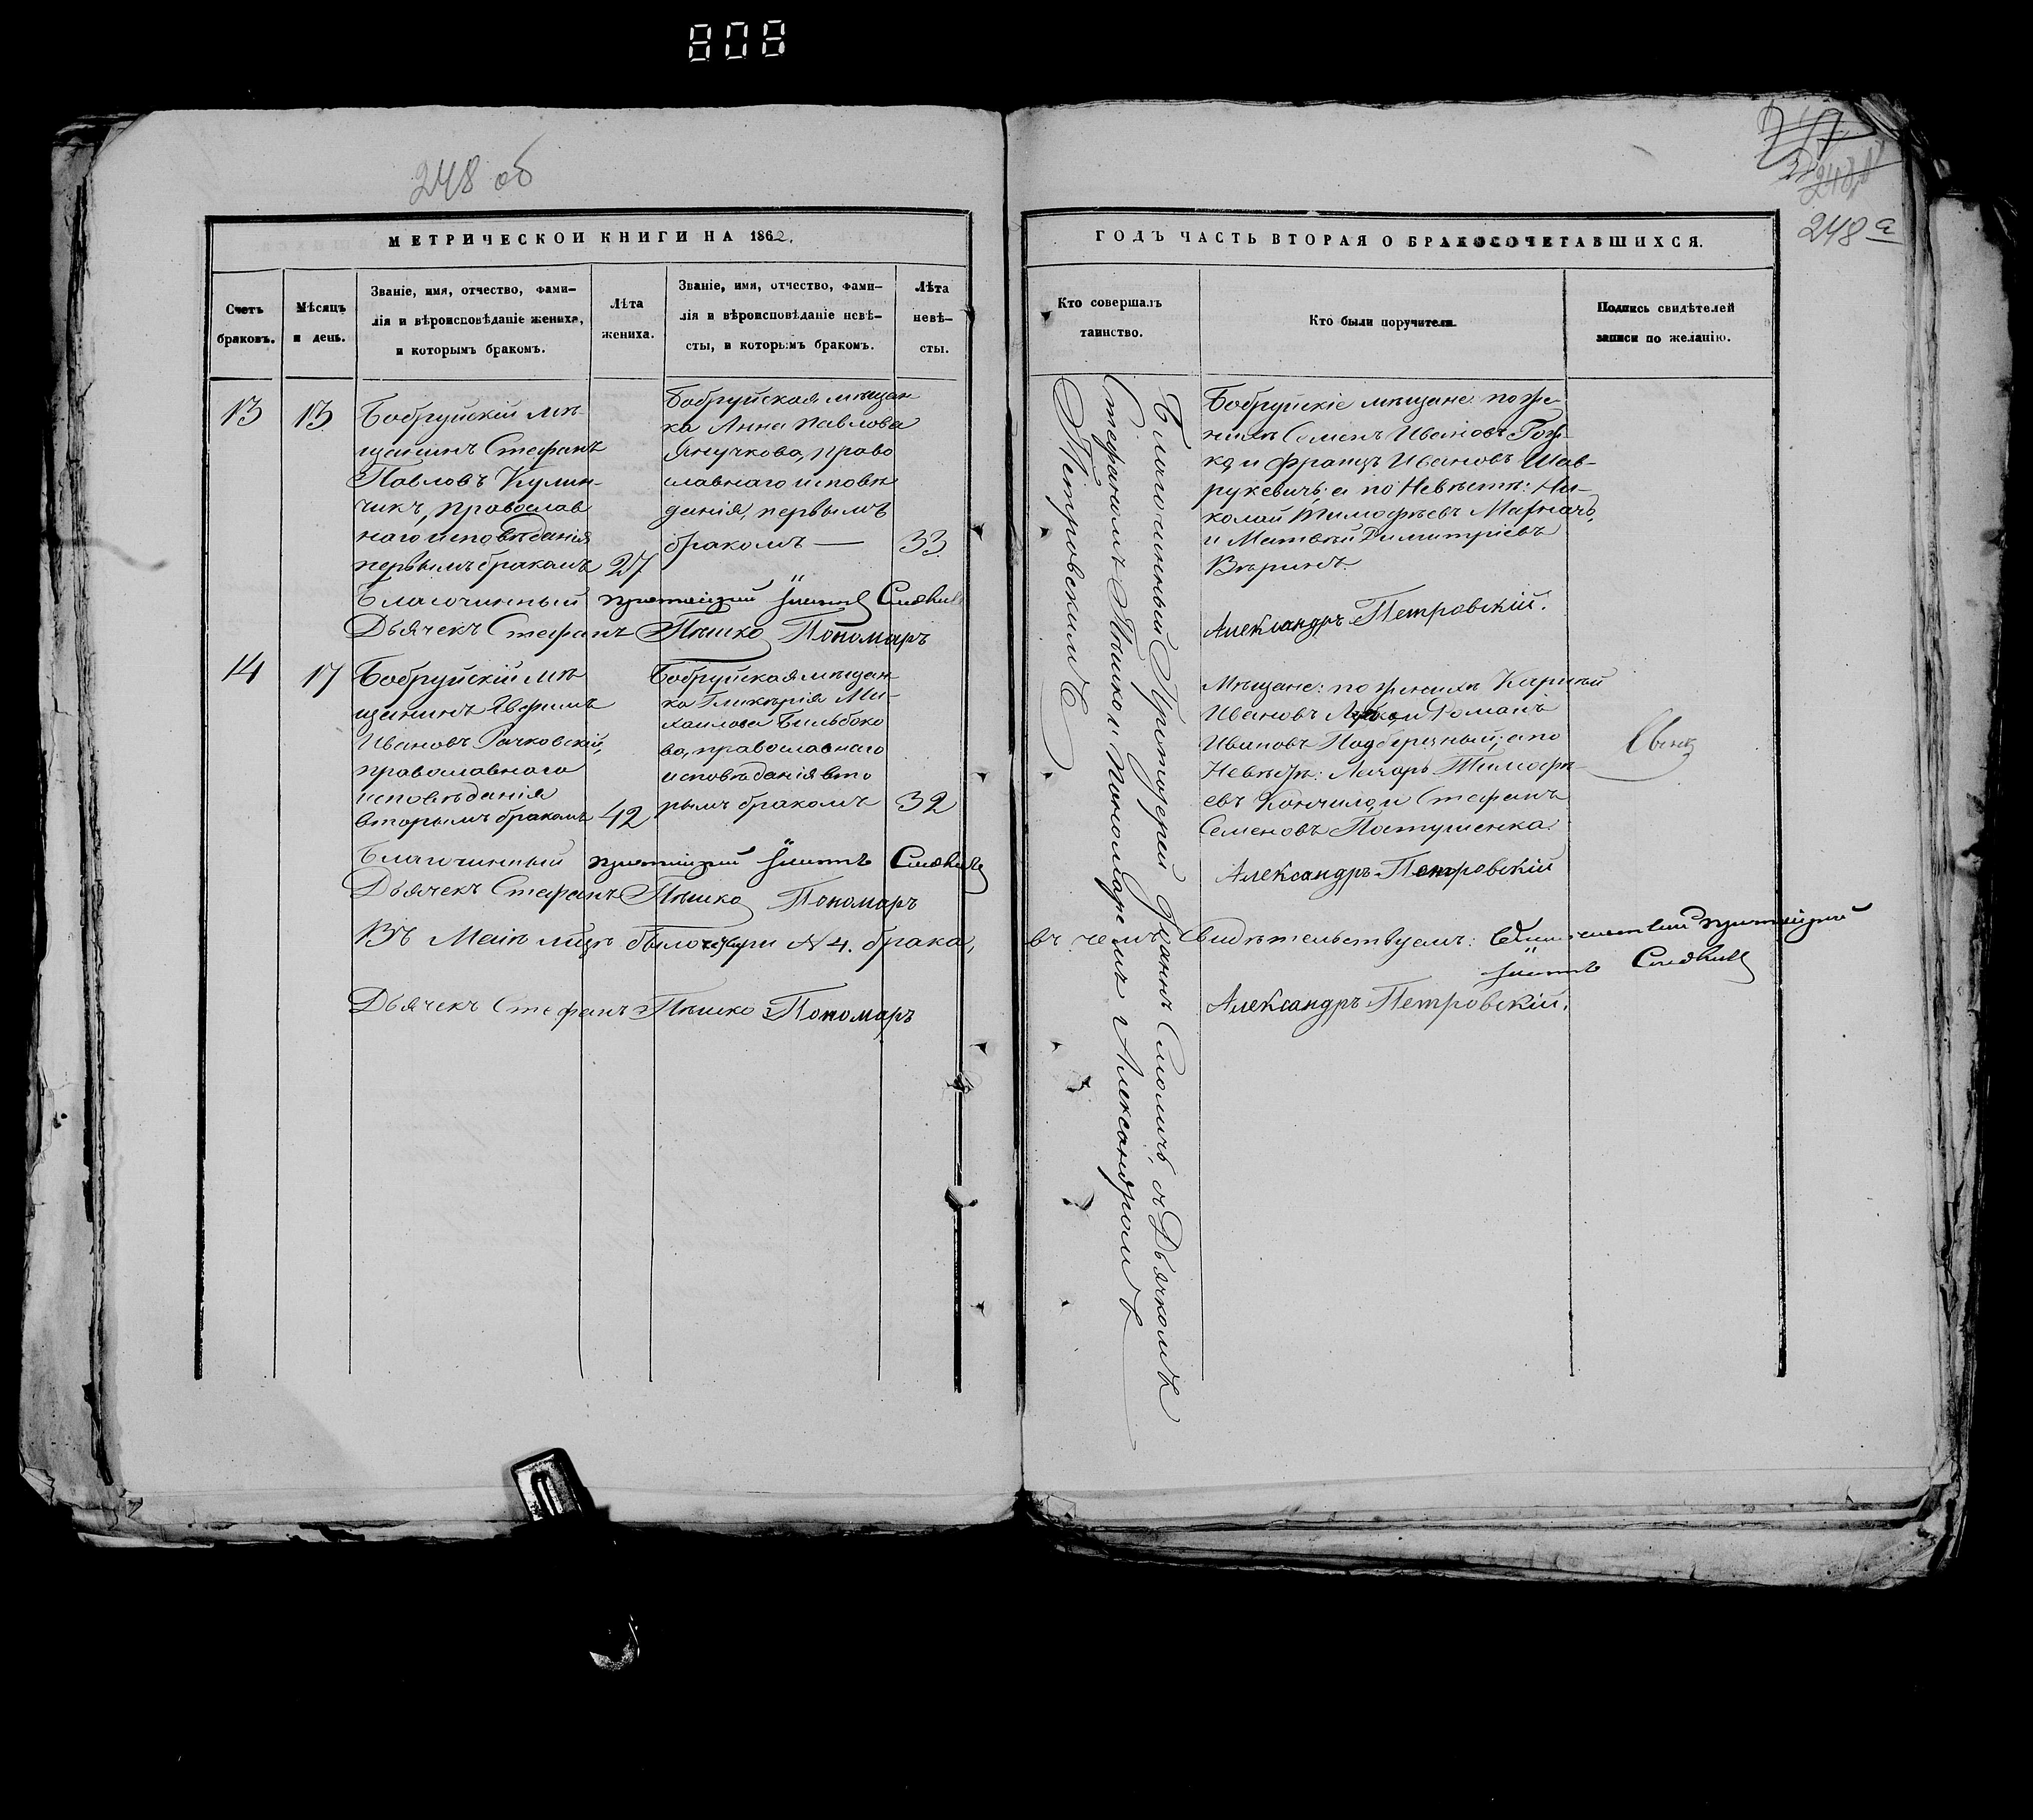 808
248 об
МЕТРИЧЕСКОИ КНИГИ НА 1862.
Счетъ браковъ.
Мѣсяцъ и день.
Званіе, имя, отчество, фами-
лія и вѣроисповѣданіе жениха,
и которымъ бракомъ.
Лѣта
жениха.
Званіе, имя, отчество, фами-
лія и вѣроисповѣданіе невѣ-
сты, и которымъ бракомъ.
Лѣта
невѣ-
сты.
13
13
Бобруйскій мѣ
щанинъ Стефанъ
Павловъ Кулин-
чикъ, православ
наго исповѣданія
первымъ бракомъ
27
Бобруйская мѣщан
ка Анна Павлова
Янучкова, право
славнаго исповѣ
данія, первымъ
бракомъ —
33
Благочинный
Дьячекъ Стефанъ Пѣшко Пономарь
14
17
Бобруйскій мѣ
щанинъ Яефимъ
Ивановъ Рачковскій,
православнаго
исповѣданія
вторымъ бракомъ
42
Бобруйская мѣщан
ка Гликерія Ми-
хаилова Бильбоко
ва, православнаго
исповѣданія вто
рымъ бракомъ
32
Благочинный
Дьячекъ Стефанъ Пѣшко Пономарь
Въ Маіѣ было четыри № 4. брака,
Дьячекъ Стефанъ Пѣшко Пономарь
248 а
ГОДЪ ЧАСТЬ ВТОРАЯ О БРАКОСОЧЕТАВШИХСЯ.
Кто совершалъ
таинство.
Кто были поручители.
Подпись свидѣтелей
записи по желанію.
Благочинный Протоіерей Іоаннъ Смоличъ, съ Дьячкомъ
Стефаномъ Пѣшкои Пономаремъ Александромъ
Петровскимъ
Бобруйскіе мѣщане: по же
нихѣ Семенъ Ивановъ Рож-
ко, и Францъ Ивановъ Шав-
рукевичъ; а по Невѣстѣ: Ни-
колай Тимофѣевъ Марначъ,
и Матвѣй Димитріевъ
Александръ Петровскій.
Мѣщане: по женихѣ
Ивановъ и Романъ
Ивановъ Подбережный; а по
Невѣстѣ: Лазарь Тимофѣ-
евъ Кончило, и Стефанъ
Семеновъ Пастушенка.
Александръ Петровскій
въ чемъ Свидѣтельствуемъ:
Александръ Петровскій.